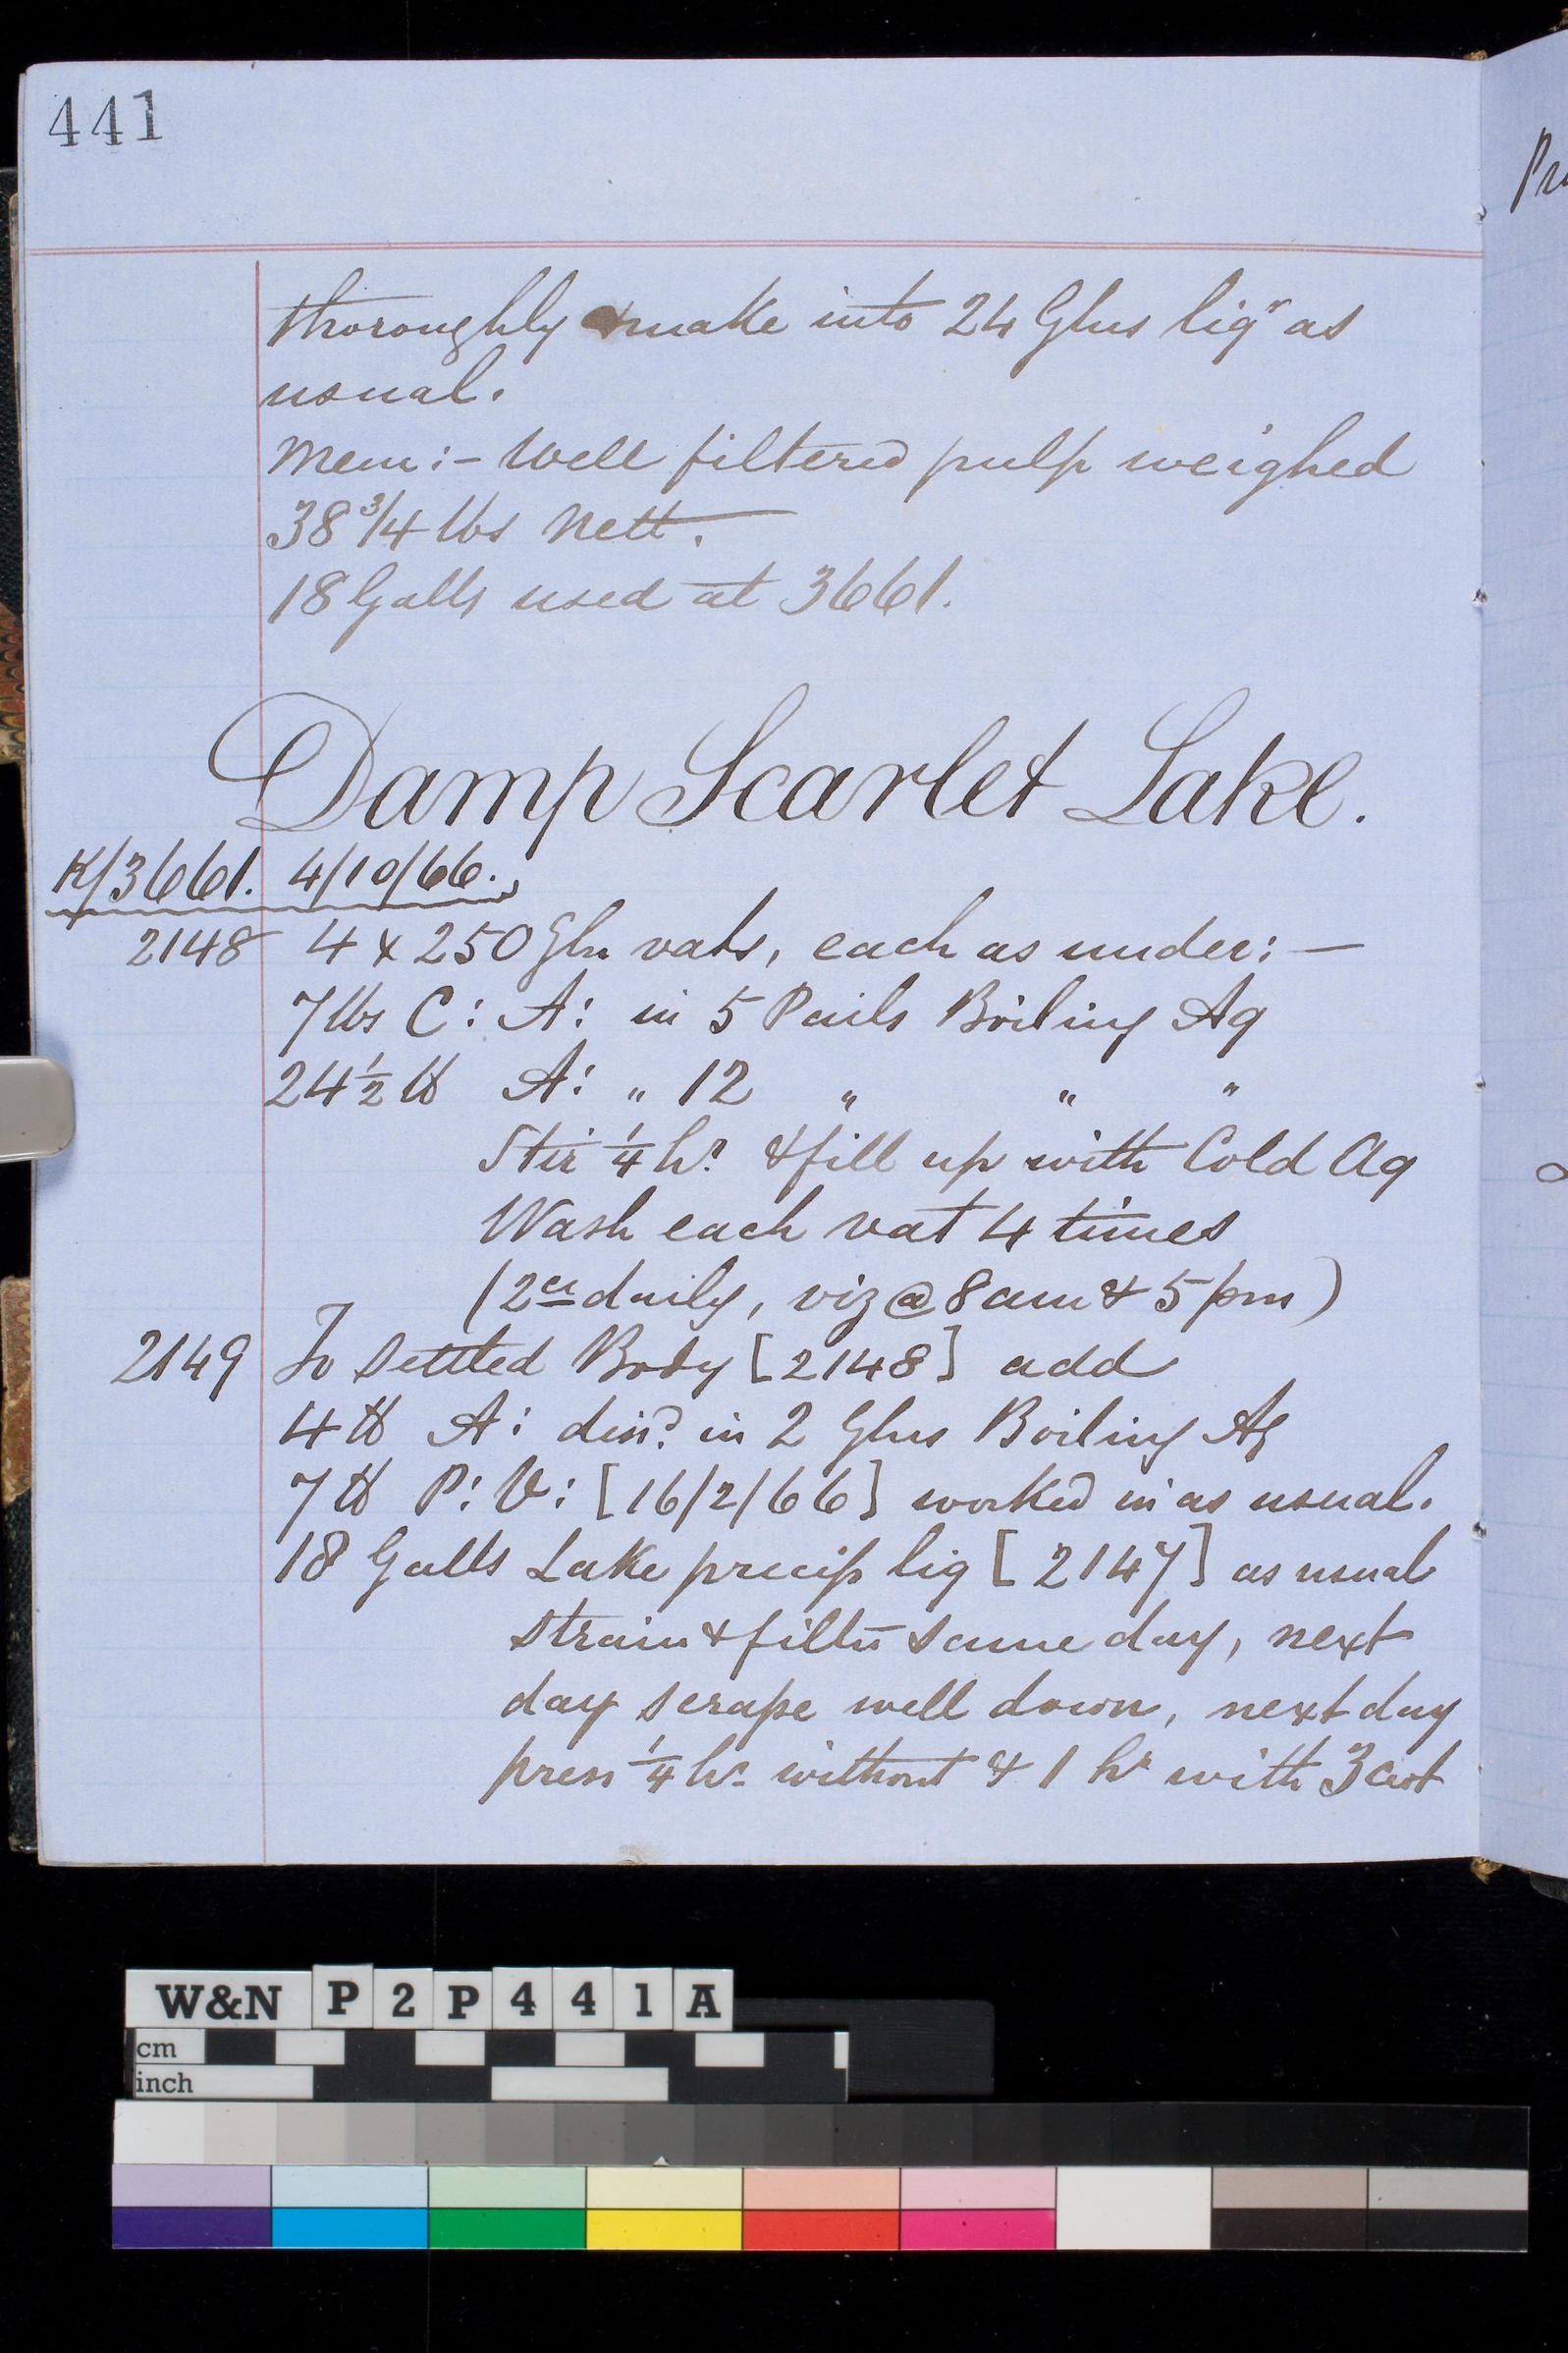 441
thoroughly & make into 24 Glns liqr as
usual.
Mem:- Well filtered pulp weighed
38 3/4 lbs nett.
18 Galls used at 3661.
Damp Scarlet Lake.
K/3661. 4/10/66.
2148 4 x 250 Gln vats, each as under:—
7 lbs C: A: in 5 Pails Boiling Aq
24 1/2 lb A: " 12 " " "
Stir 1/4 hr & fill up with Cold Aq
Wash each vat 4 times
(2ce daily, viz @ 8 am & 5 pm)
2149 To Settled Body [2148] add
4 lb A: disd in 2 Glns Boiling Aq
7 lb P: V: [16/2/66] worked in as usual.
18 Galls Lake precip liq [2147] as usual
strain & filter same day, next
day scrape well down, next day
press 1/4 hr without & 1 hr with 3 cwt
W&N P 2 P 4 4 1 A
cm
inch